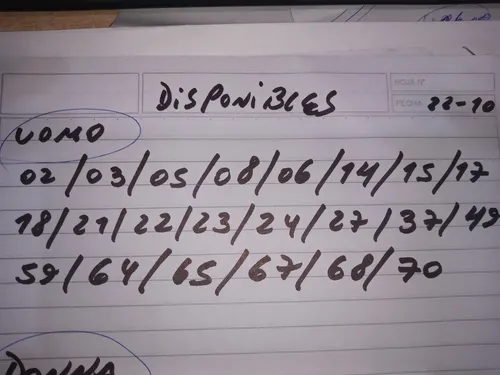 DISPONIBLES
HOJA N°
FECHA 22-10
UOMO
02/03/05/08/06/14/15/17
18/21/22/23/24/27/37/49
59/64/65/67/68/70
DONNA